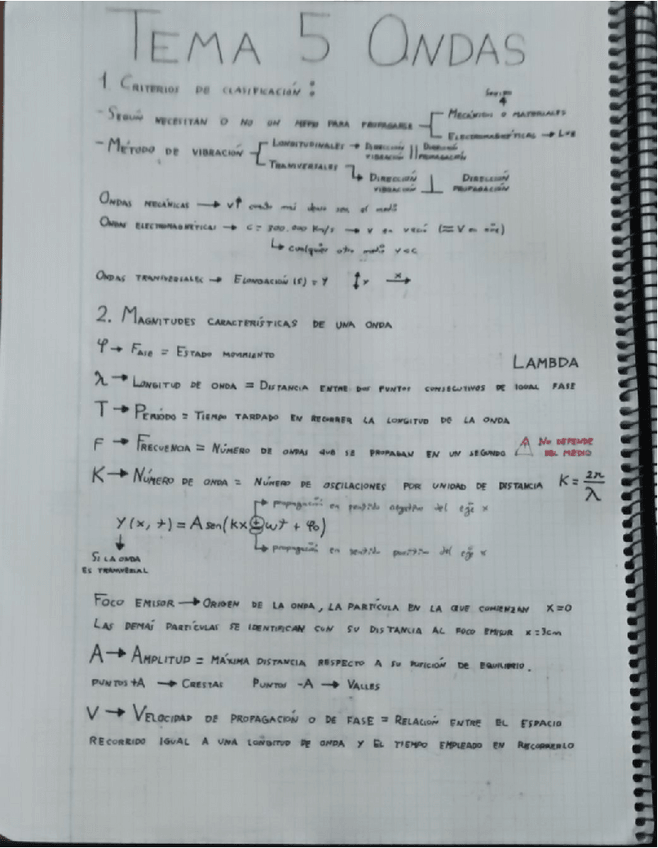 TEMA 5 ONDAS
1. CRITERIOS DE CLASIFICACIÓN:
- SEGÚN NECESITAN O NO UN MEDIO PARA PROPAGARSE
MECÁNICAS O MATERIALES
ELECTROMAGNÉTICAS → LUZ
- MÉTODO DE VIBRACIÓN
LONGITUDINALES → DIRECCIÓN VIBRACIÓN || DIRECCIÓN PROPAGACIÓN
TRANSVERSALES
↳ DIRECCIÓN VIBRACIÓN ⊥ DIRECCIÓN PROPAGACIÓN
ONDAS MECÁNICAS → v↑ cuando más denso sea el medio
ONDAS ELECTROMAGNÉTICAS → c = 300.000 Km/s → v en vacío (≈ v en aire)
↳ cualquier otro medio v<c
ONDAS TRANSVERSALES → ELONGACIÓN (s) = Y ↕ Y x →
2. MAGNITUDES CARACTERÍSTICAS DE UNA ONDA
φ → FASE = ESTADO MOVIMIENTO
LAMBDA
λ → LONGITUD DE ONDA = DISTANCIA ENTRE DOS PUNTOS CONSECUTIVOS DE IGUAL FASE
T → PERÍODO = TIEMPO TARDADO EN RECORRER LA LONGITUD DE LA ONDA
F → FRECUENCIA = NÚMERO DE ONDAS QUE SE PROPAGAN EN UN SEGUNDO ⚠ NO DEPENDE DEL MEDIO
K → NÚMERO DE ONDA = NÚMERO DE OSCILACIONES POR UNIDAD DE DISTANCIA K = 2π/λ
→ propagación en sentido negativo del eje x
Y(x, t) = A sen(kx ± wt + φ₀)
↳ propagación en sentido positivo del eje x
SI LA ONDA
ES TRANSVERSAL
FOCO EMISOR → ORIGEN DE LA ONDA, LA PARTÍCULA EN LA QUE COMIENZAN X=0
LAS DEMÁS PARTÍCULAS SE IDENTIFICAN CON SU DISTANCIA AL FOCO EMISOR x=3cm
A → AMPLITUD = MÁXIMA DISTANCIA RESPECTO A SU POSICIÓN DE EQUILIBRIO.
PUNTOS +A → CRESTAS PUNTOS -A → VALLES
V → VELOCIDAD DE PROPAGACIÓN O DE FASE = RELACIÓN ENTRE EL ESPACIO
RECORRIDO IGUAL A UNA LONGITUD DE ONDA Y EL TIEMPO EMPLEADO EN RECORRERLO